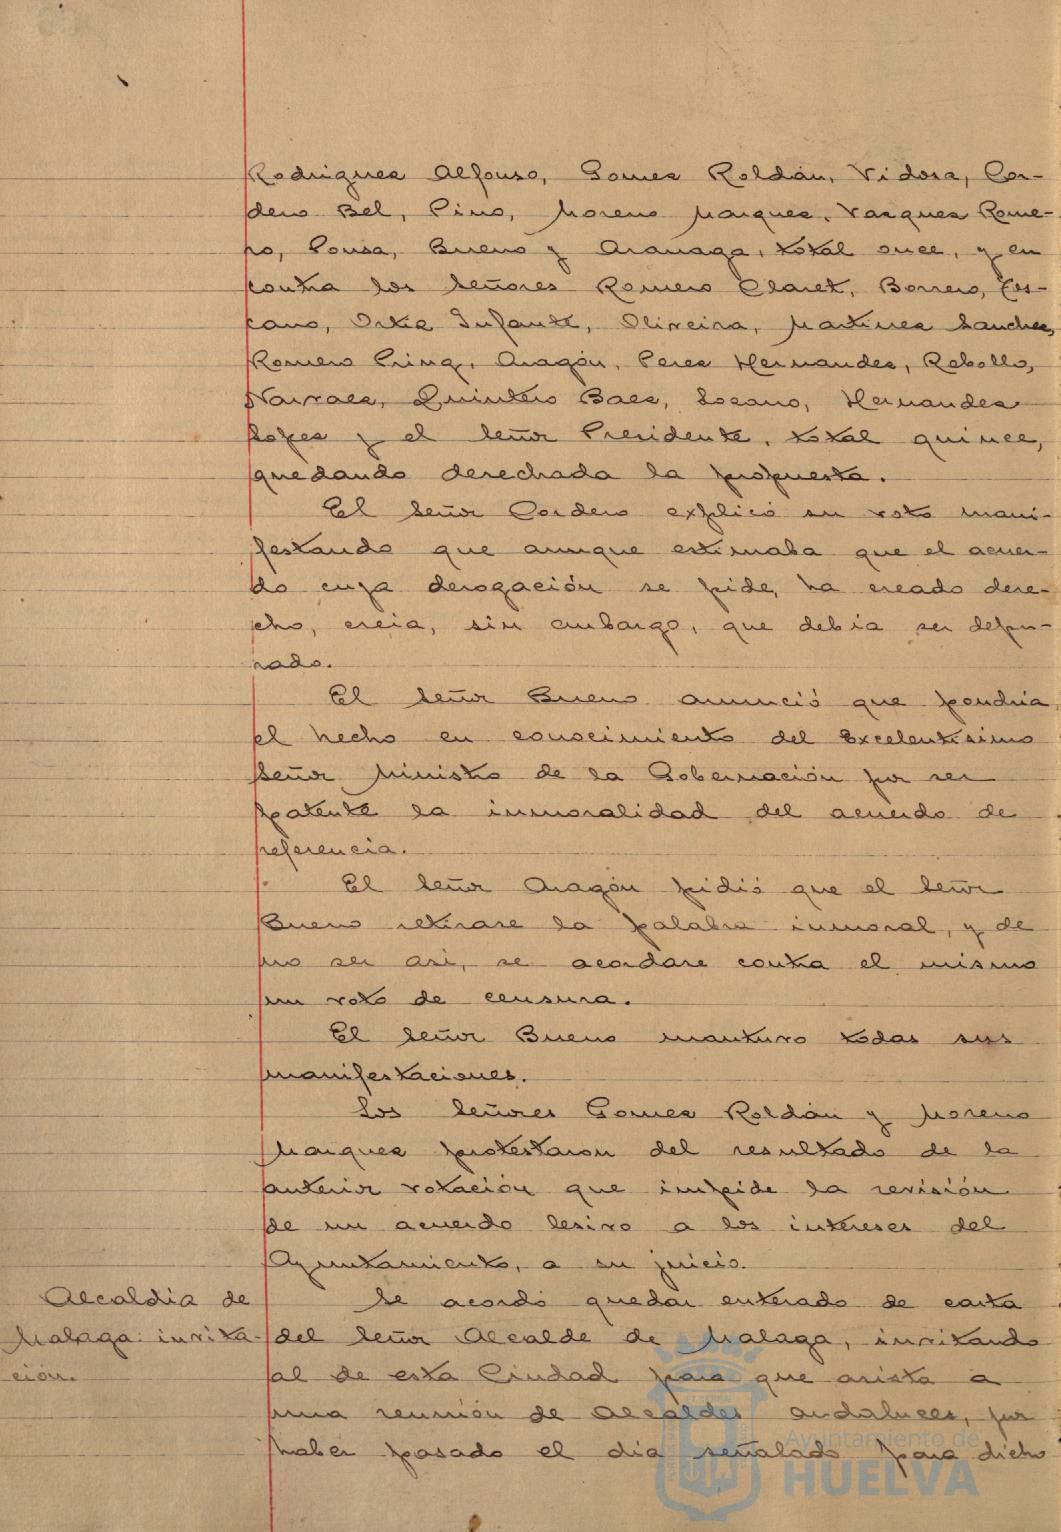 Rodriguez Alfonso, Gomez Roldán, Vidosa, Cor-
dero Bel, Pino, Moreno Marquez, Vazquez Rome-
ro, Ponsa, Bueno y Aranaga, total once, y en
contra los Señores Romero Claret, Borrero, Tos-
cano, Ortiz Infante, Oliveira, Martinez Sanchez,
Romero Pring, Aragón, Perez Hernandez, Rebollo,
Narvaez, Quintero Baez, Lozano, Hernandez
Lopez y el Señor Presidente, total quince,
quedando desechada la propuesta.
El Señor Cordero explicó su voto mani-
festando que aunque estimaba que el acuer-
do cuya derogación se pide, ha creado dere-
cho, creia, sin embargo, que debia ser depu-
rado.
El Señor Bueno anunció que pondria
el hecho en conocimiento del Excelentisimo
Señor Ministro de la Gobernación por ser
patente la inmoralidad del acuerdo de
referencia.
El Señor Aragón pidió que el Señor
Bueno retirase la palabra inmoral, y de
no ser asi, se acordase contra el mismo
un voto de censura.
El Señor Bueno mantuvo todas sus
manifestaciones.
Los Señores Gomez Roldán y Moreno
Marquez protestaron del resultado de la
anterior votación que impide la revisión
de un acuerdo lesivo a los intereses del
Ayuntamiento, a su juicio.
Alcaldia de
Malaga: invita-
ción.
Se acordó quedar enterado de carta
del Señor Alcalde de Malaga, invitando
al de esta Ciudad para que asista a
una reunión de Alcaldes andaluces, por
haber pasado el dia señalado para dicho
Ayuntamiento de
HUELVA